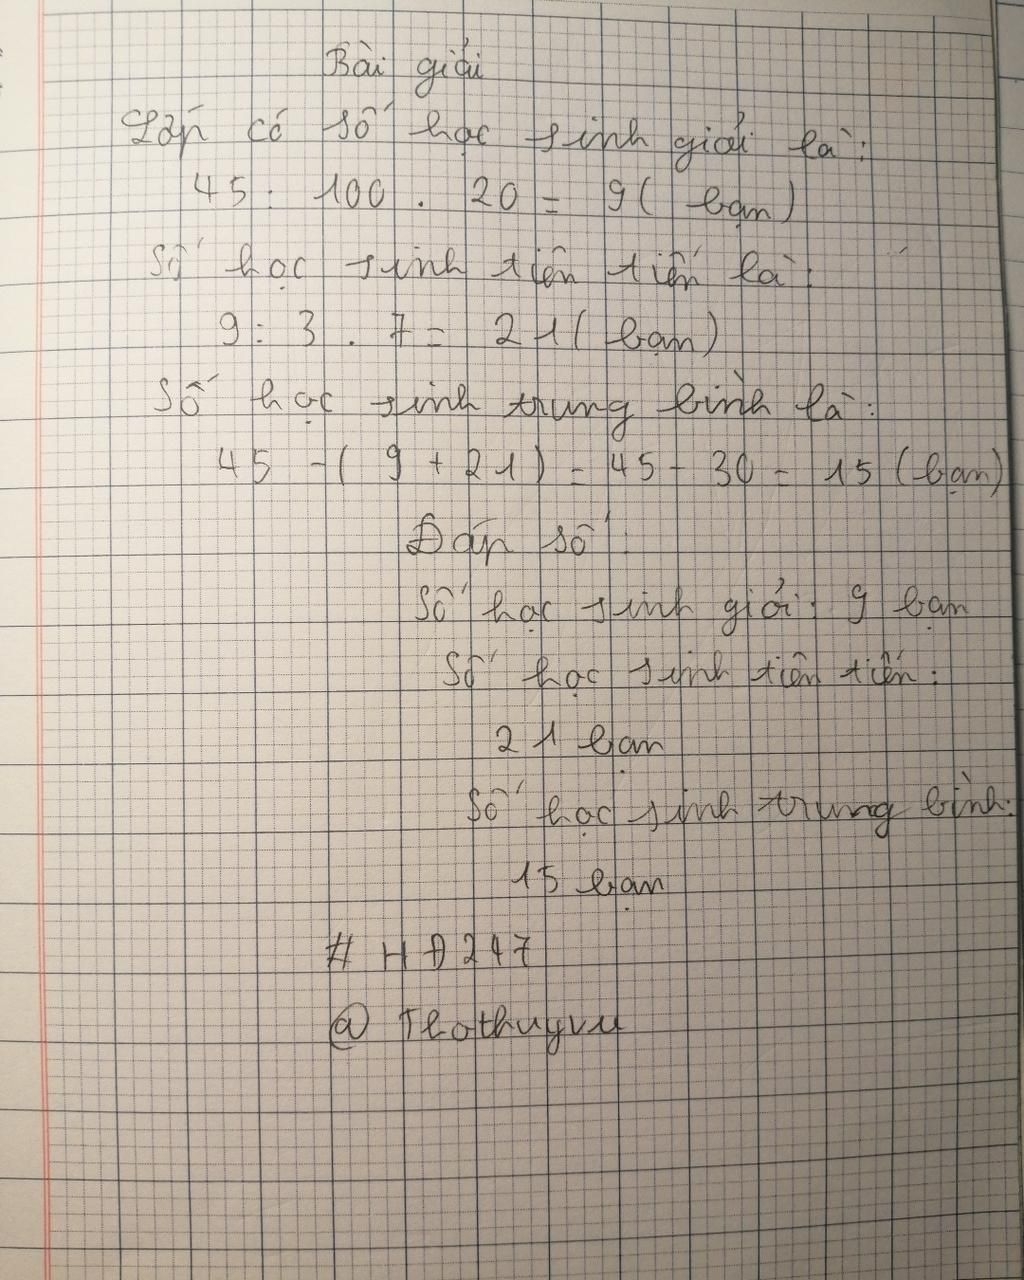 Bài giải
Lớp có số học sinh giỏi là:
45 : 100 . 20 = 9 ( bạn )
Số học sinh tiên tiến là:
9 : 3 . 7 = 21 ( bạn )
Số học sinh trung bình là:
45 - ( 9 + 21 ) = 45 - 30 = 15 ( bạn )
Đáp số:
Số học sinh giỏi: 9 bạn
Số học sinh tiên tiến:
21 bạn
Số học sinh trung bình:
15 bạn
# HĐ247
@ Thothuyvu